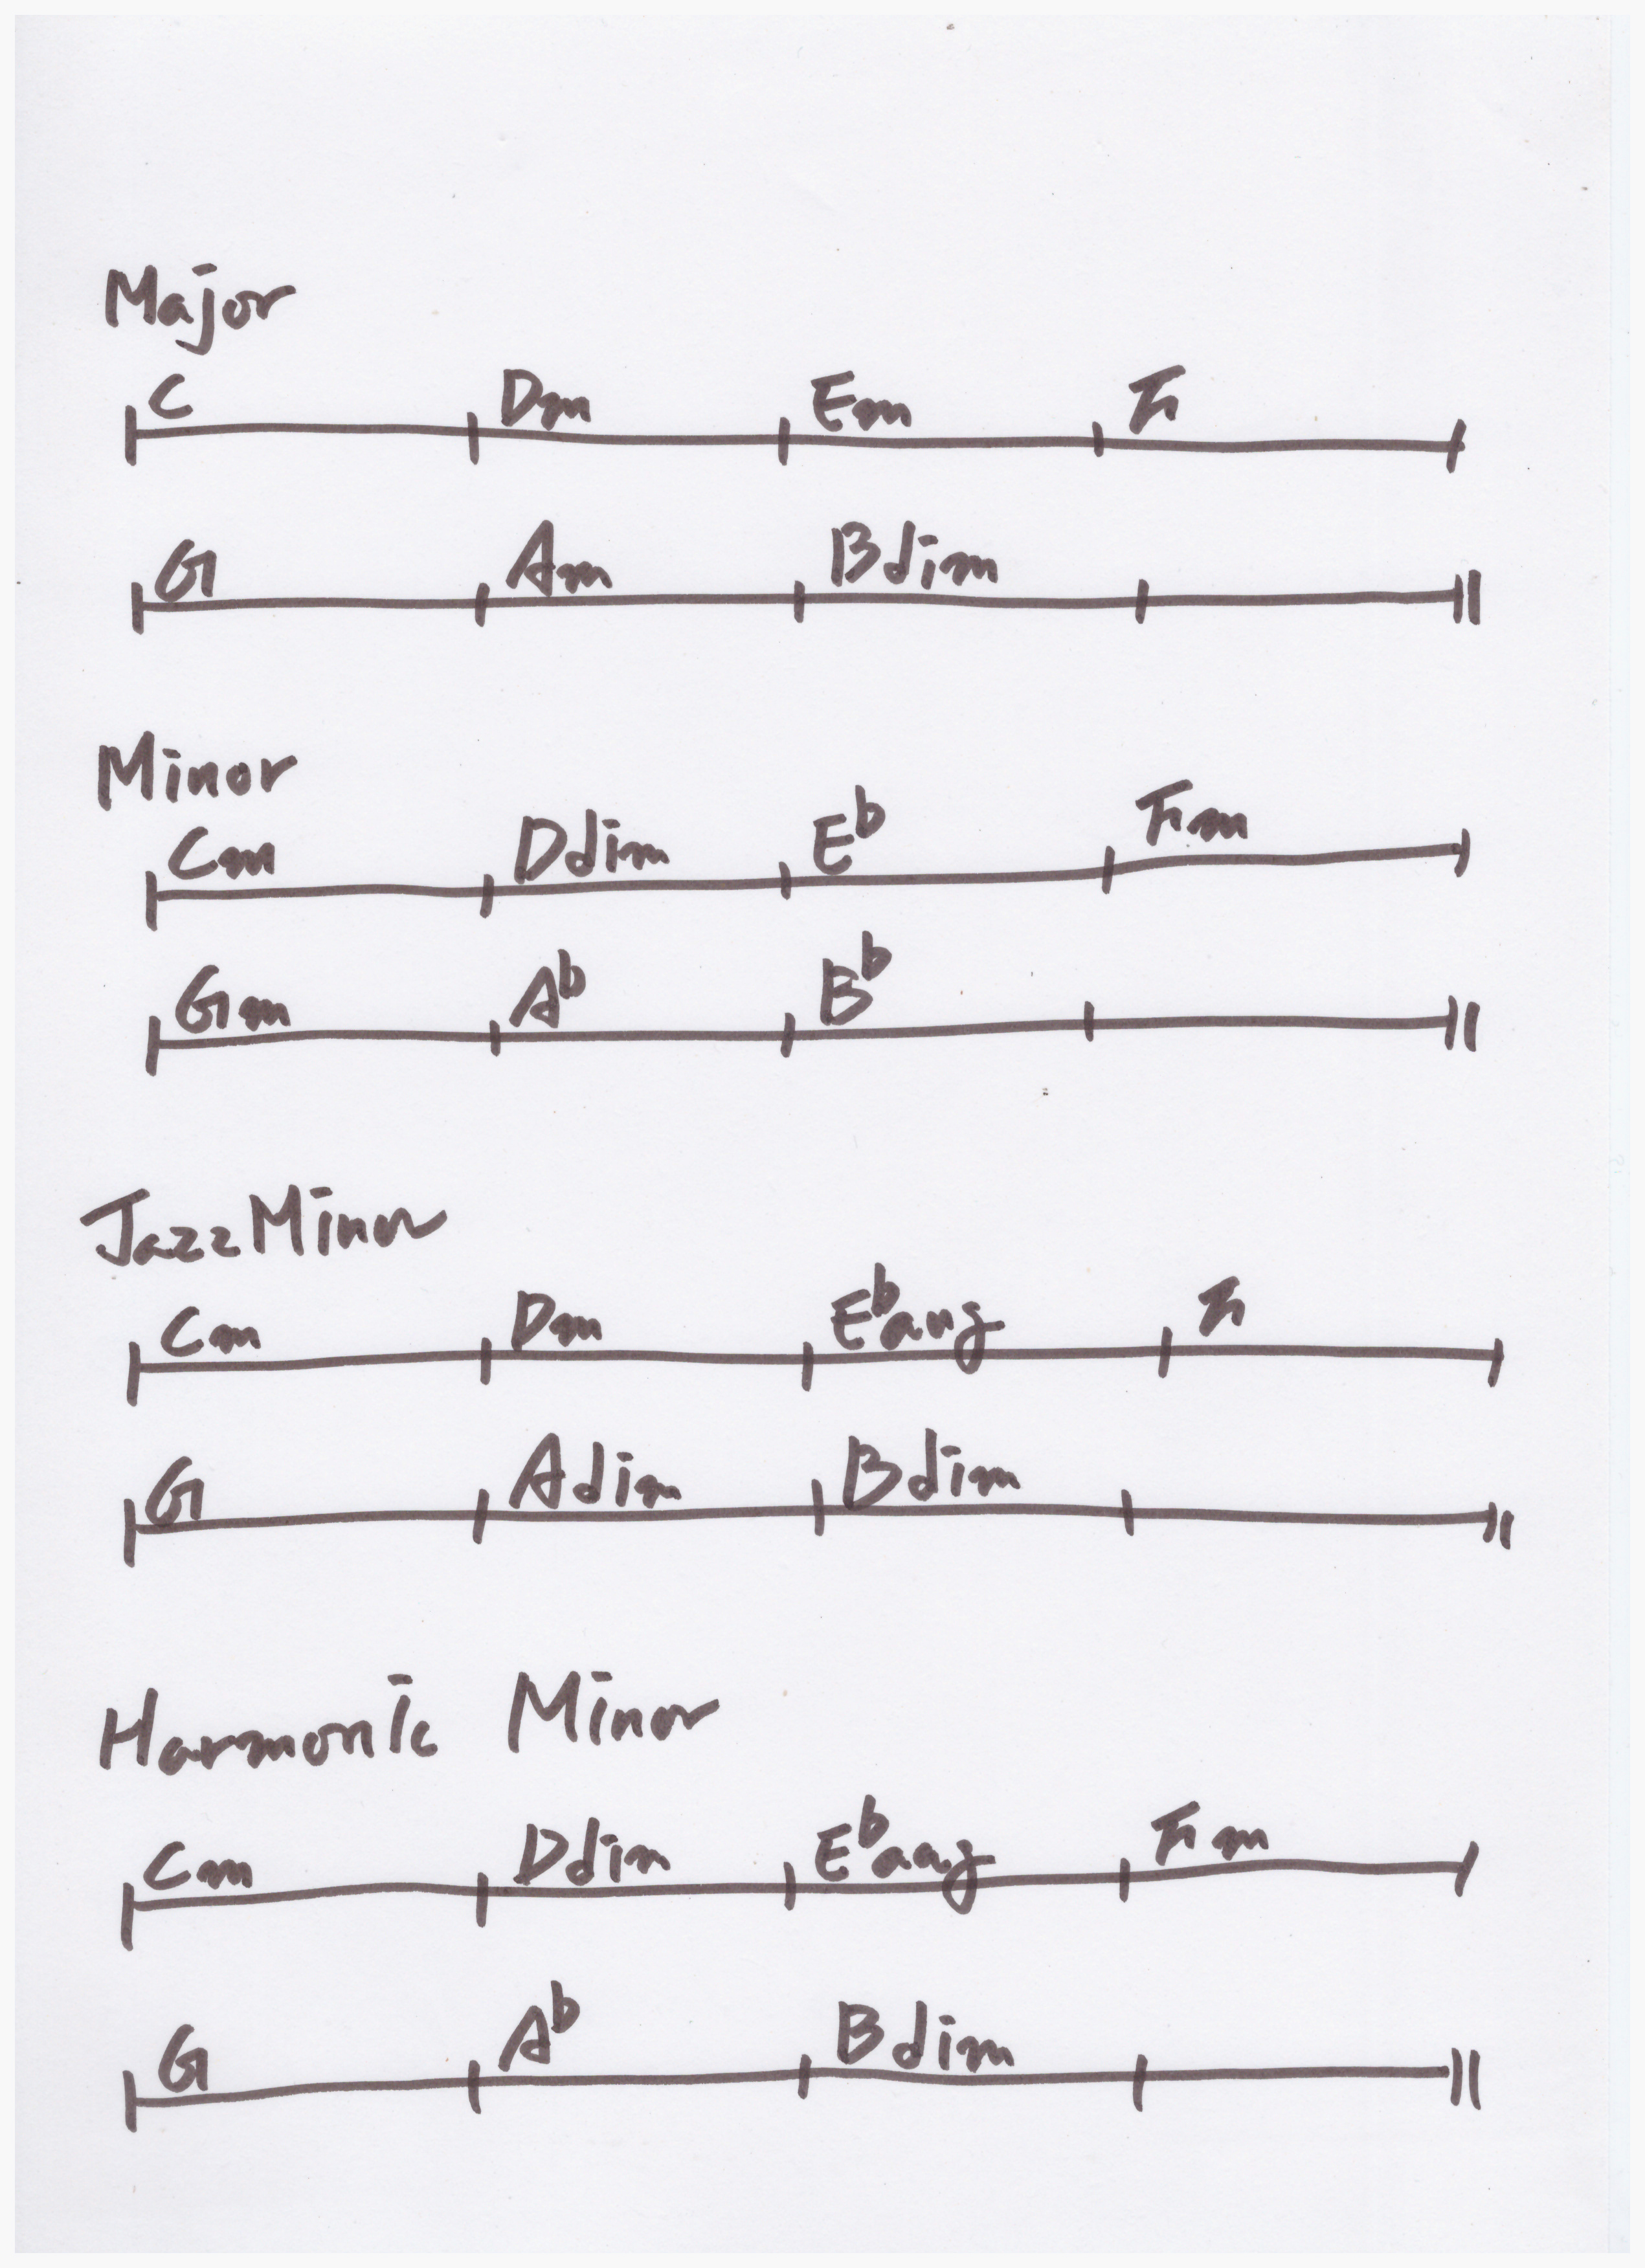 Major
C Dm Em F
G Am Bdim
Minor
Cm Ddim E♭ Fm
Gm A♭ B♭
Jazz Minor
Cm Dm E♭aug F
G Adim Bdim
Harmonic Minor
Cm Ddim E♭aug Fm
G A♭ Bdim